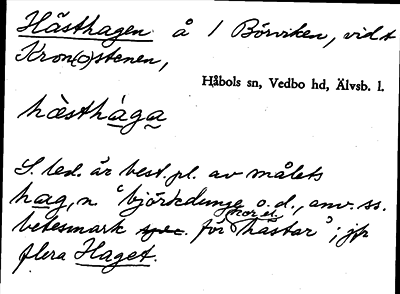 Hästhagen å 1 Börviken, vid t
Kron(o)stenen,
Håbols sn, Vedbo hd, Älvsb. l.
hàsthága
S. led. är best. pl. av målets
hag, n. "björkdunge o.d., anv. ss.
betesmark för kor el. hästar"; jfr
flera Haget.